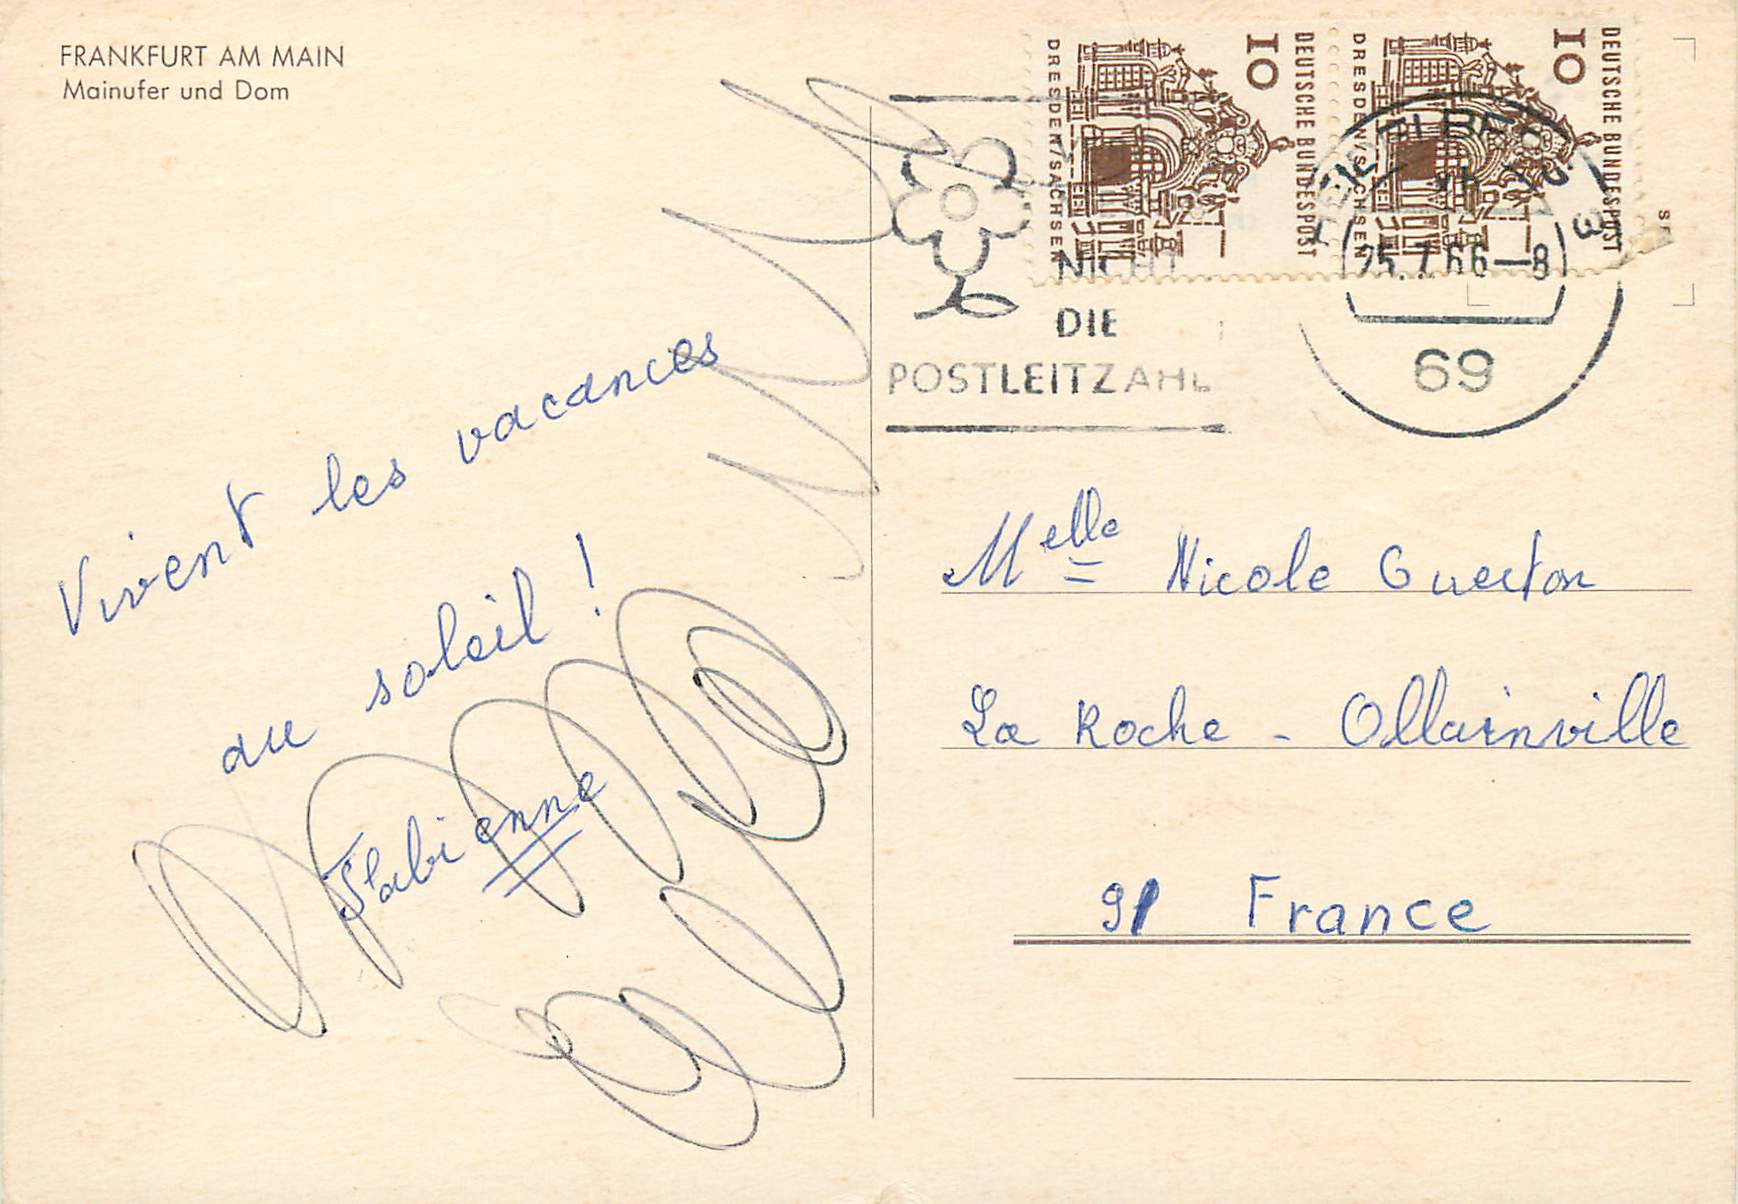 FRANKFURT AM MAIN
Mainufer und Dom
Vivent les vacances
au soleil !
Fabienne
10
DEUTSCHE BUNDESPOST
DRESDEN/SACHSEN
10
DEUTSCHE BUNDESPOST
DRESDEN/SACHSEN
NICHT
DIE
POSTLEITZAHL
HEIDELBERG
25.7.66-8
69
Melle Nicole Guerton
La Roche - Ollainville
91 France